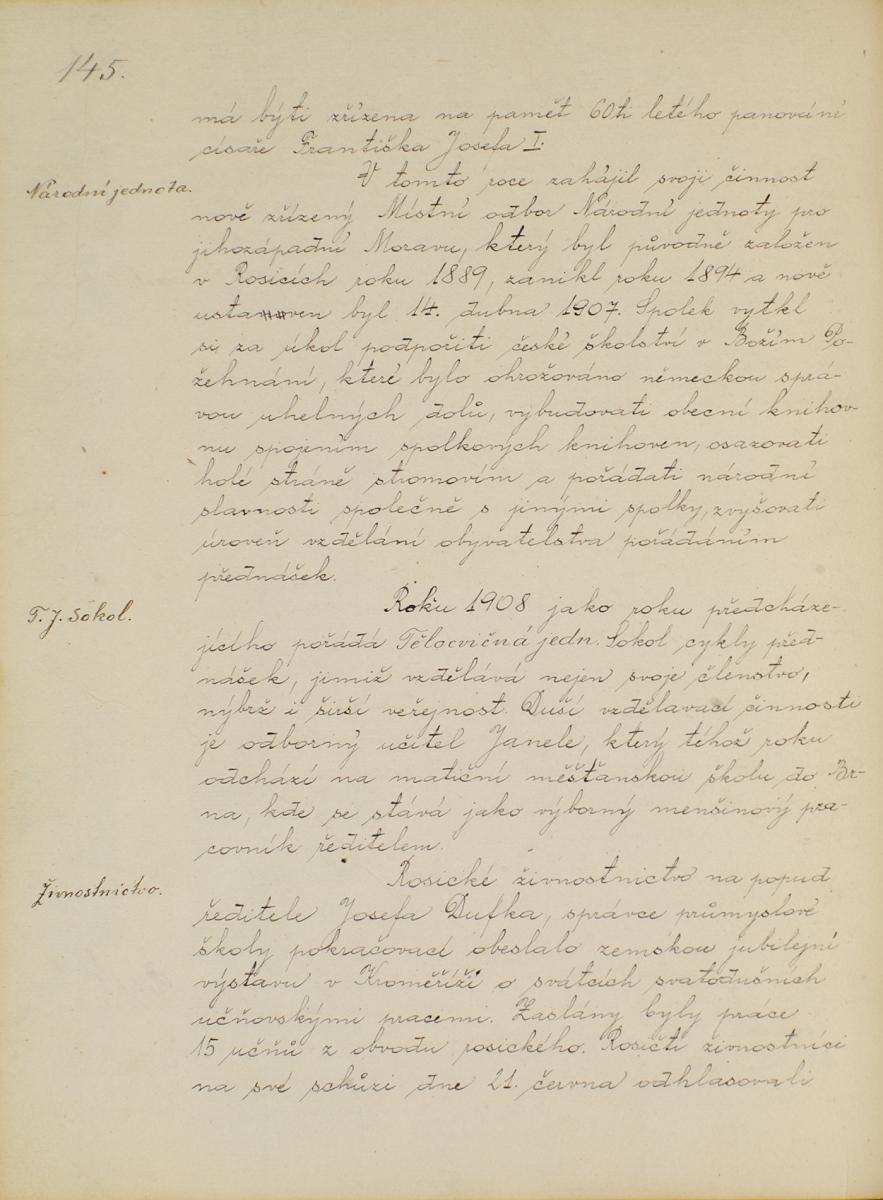 145.
má býti zřízena na pamět 60ti letého panování
císaře Františka Josefa I.
Národní jednota.
V tomto roce zahájil svoji činnost
nově zřízený Místní odbor Národní jednoty pro
jihozápadní Moravu, který byl původně založen
v Rosicích roku 1889, zanikl roku 1894 a nově
ustaven byl 14. dubna 1907. Spolek vytkl
si za úkol podpořiti české školství v Božím Po-
žehnání, které bylo ohrožováno německou sprá-
vou uhelných dolů, vybudovati obecní knihov-
nu spojením spolkových knihoven, osazovati
holé stráně stromovím a pořádati národní
slavnosti společně s jinými spolky, zvyšovati
úroveň vzdělání obyvatelstva pořádáním
přednášek.
T. J. Sokol.
Roku 1908 jako roku předcháze-
jícího pořádá Tělocvičná jedn. Sokol cykly před-
nášek, jimiž vzdělává nejen svoje členstvo,
nýbrž i širší veřejnost. Duší vzdělavací činnosti
je odborný učitel Janele, který téhož roku
odchází na matiční měšťanskou školu do Br-
na, kde se stává jako výborný menšinový pra-
covník ředitelem.
Živnostnictvo.
Rosické živnostnictvo na popud
ředitele Josefa Dufka, správce průmyslové
školy pokračovací obeslalo zemskou jubilejní
výstavu v Kroměříži o svátcích svatodušních
učňovskými pracemi. Zaslány byly práce
15 učňů z obvodu rosického. Rosičtí živnostníci
na své schůzi dne 21. června odhlasovali